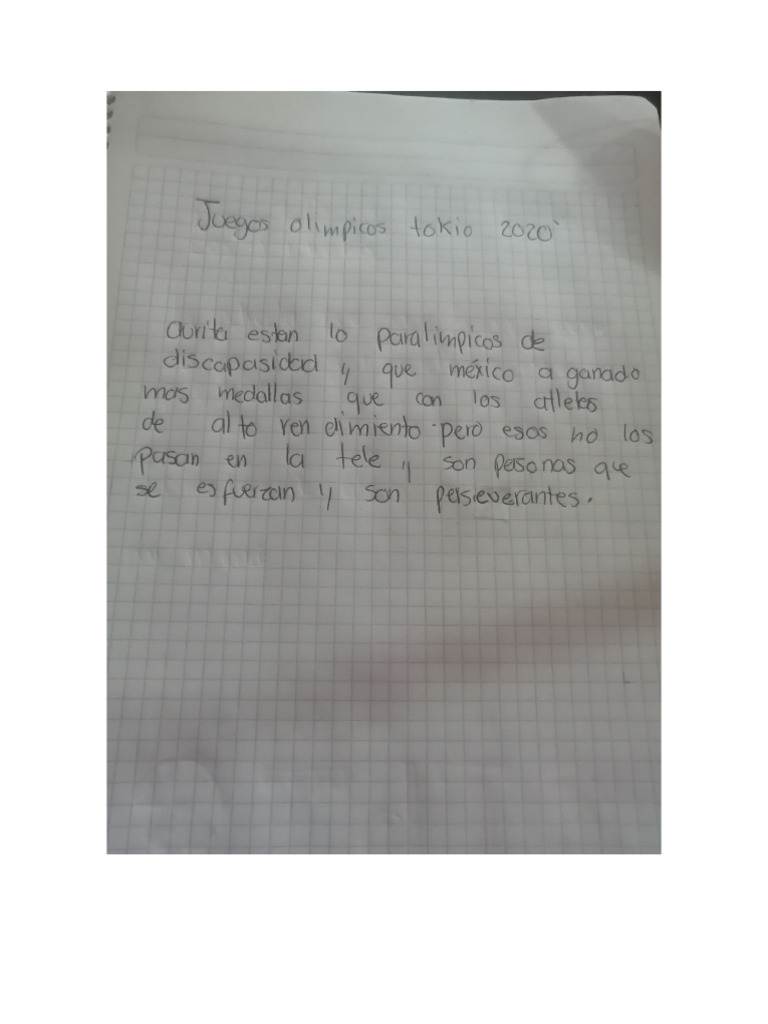 Juegos olimpicos tokio 2020
aurita estan lo paralimpicos de
discapasidad y que méxico a ganado
mas medallas que con los atletas
de alto rendimiento pero esos no los
pasan en la tele y son personas que
se esfuerzan y son perseverantes.